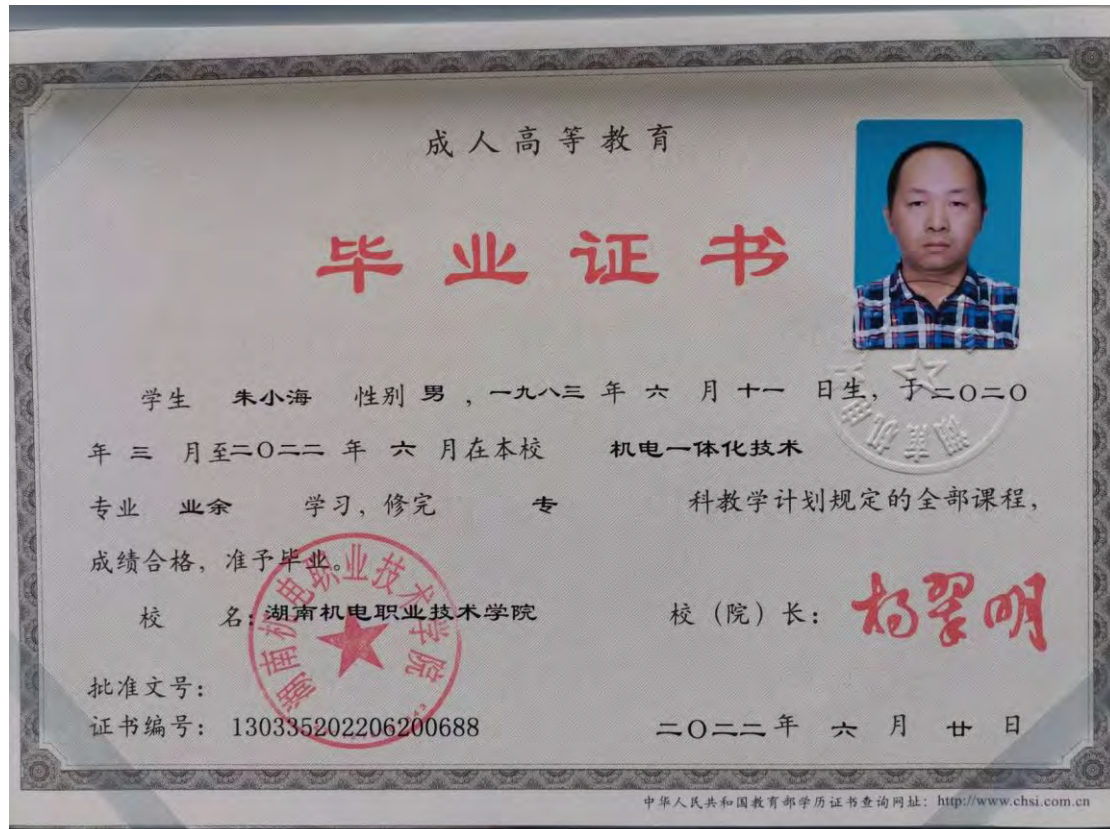 成人高等教育
毕业证书
学生 朱小海 性别 男 ，一九八三 年 六 月 十一 日生，于二〇二〇
年 三 月至二〇二二 年 六 月在本校 机电一体化技术
专业 业余 学习，修完 专 科教学计划规定的全部课程，
成绩合格，准予毕业。
校 名：湖南机电职业技术学院 校（院）长：杨翠明
湖南机电职业技术学院
批准文号：
证书编号：130335202206200688 二〇二二年 六 月 廿 日
中华人民共和国教育部学历证书查询网址：http://www.chsi.com.cn